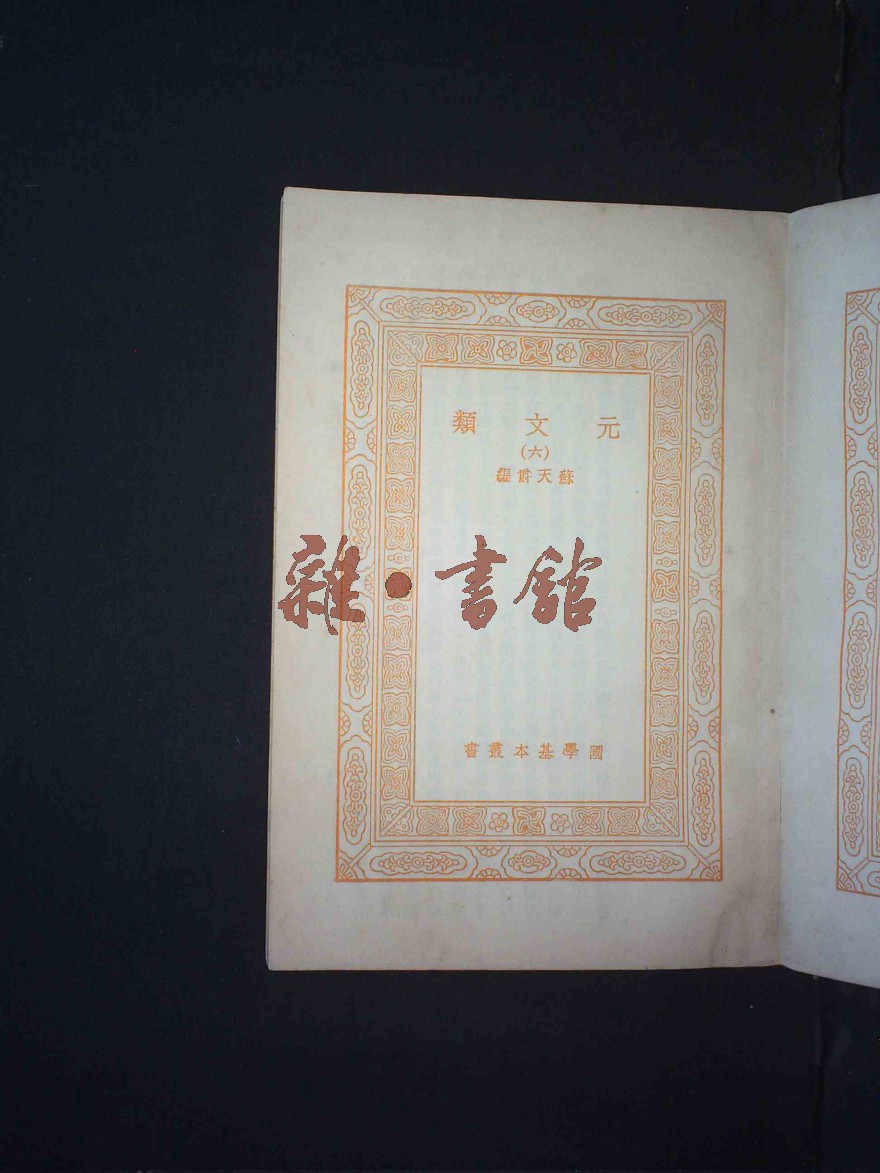 元文類
(六)
蘇天爵編
雜·書館
國學基本叢書